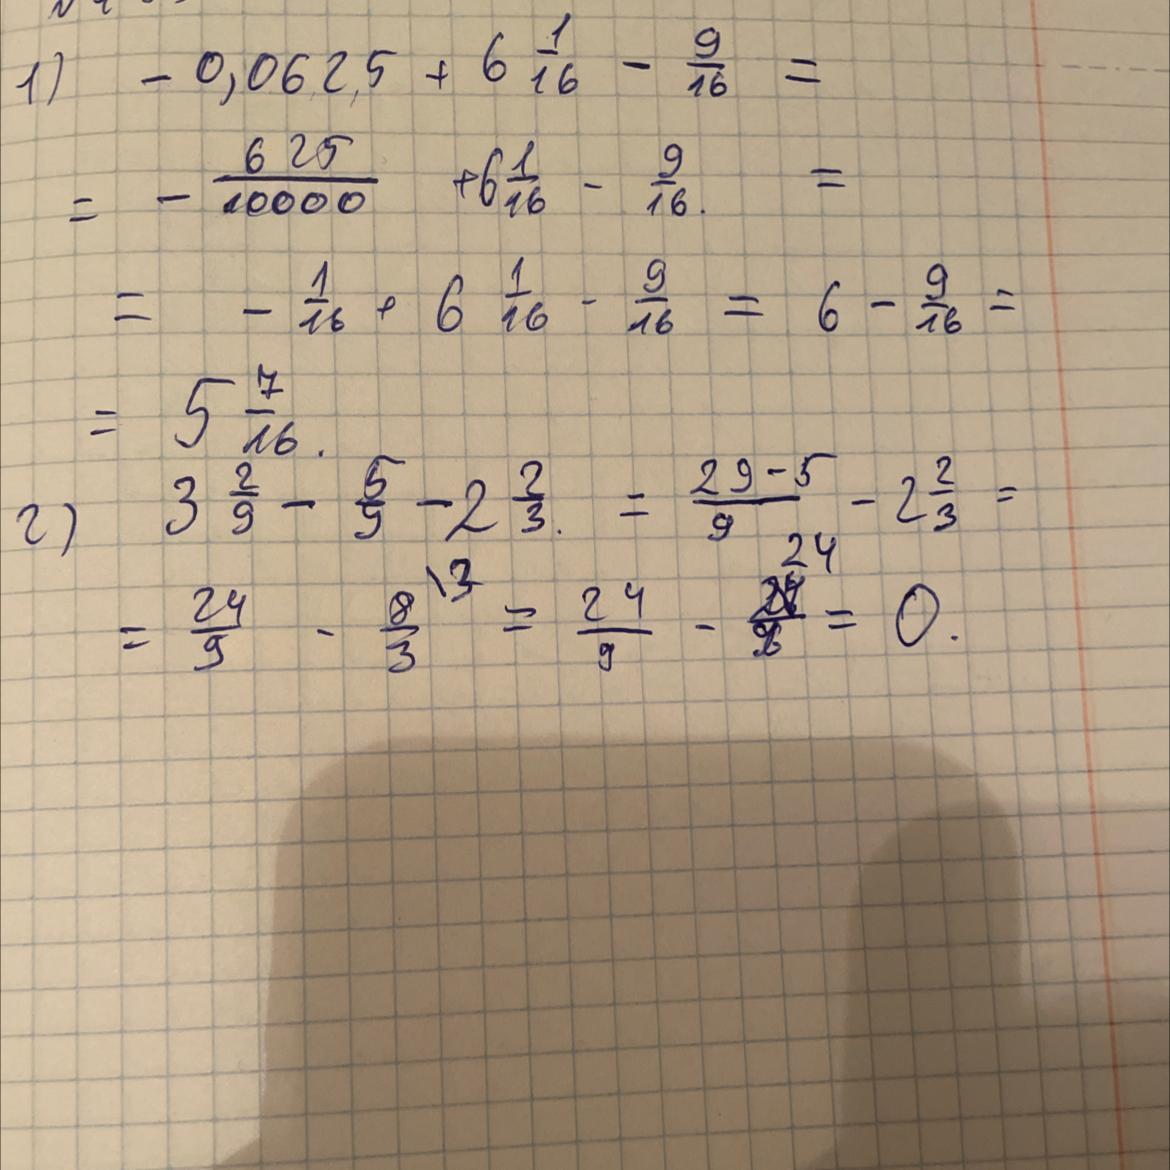 1) - 0,0625 + 6 1/16 - 9/16 =
= - 625/10000 + 6 1/16 - 9/16. =
= - 1/16 + 6 1/16 - 9/16 = 6 - 9/16 =
= 5 7/16.
2) 3 2/9 - 5/9 - 2 2/3. = 29-5/9 - 2 2/3 =
= 24/9 - 8/3 \3 = 24/9 - 24/9 = 0.